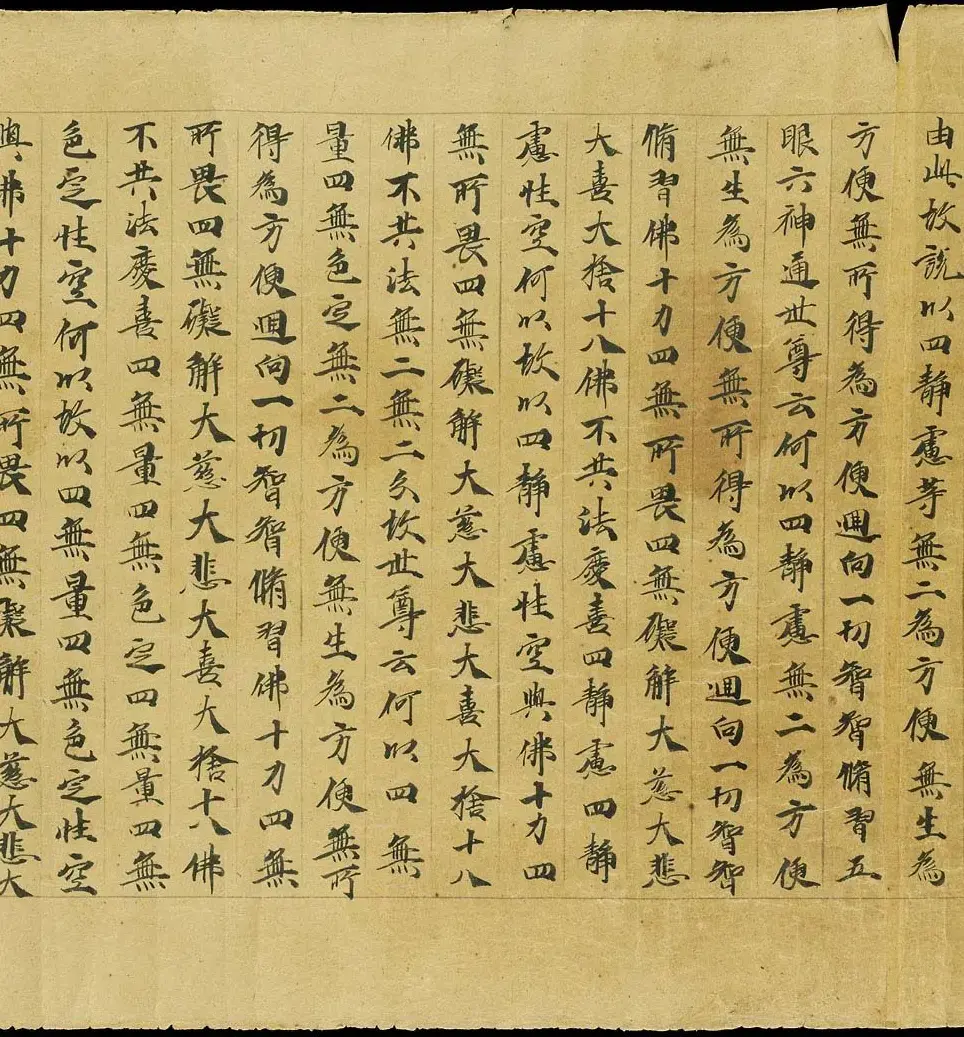 由此故說以四靜慮等無二為方便無生為
方便無所得為方便迴向一切智智脩習五
眼六神通世尊云何以四靜慮無二為方便
無生為方便無所得為方便迴向一切智智
脩習佛十力四無所畏四無礙解大慈大悲
大喜大捨十八佛不共法慶喜四靜慮四靜
慮性空何以故以四靜慮性空與佛十力四
無所畏四無礙解大慈大悲大喜大捨十八
佛不共法無二無二分故世尊云何以四無
量四無色定無二為方便無生為方便無所
得為方便迴向一切智智脩習佛十力四無
所畏四無礙解大慈大悲大喜大捨十八佛
不共法慶喜四無量四無色定四無量四無
色定性空何以故以四無量四無色定性空
與佛十力四無所畏四無礙解大慈大悲大